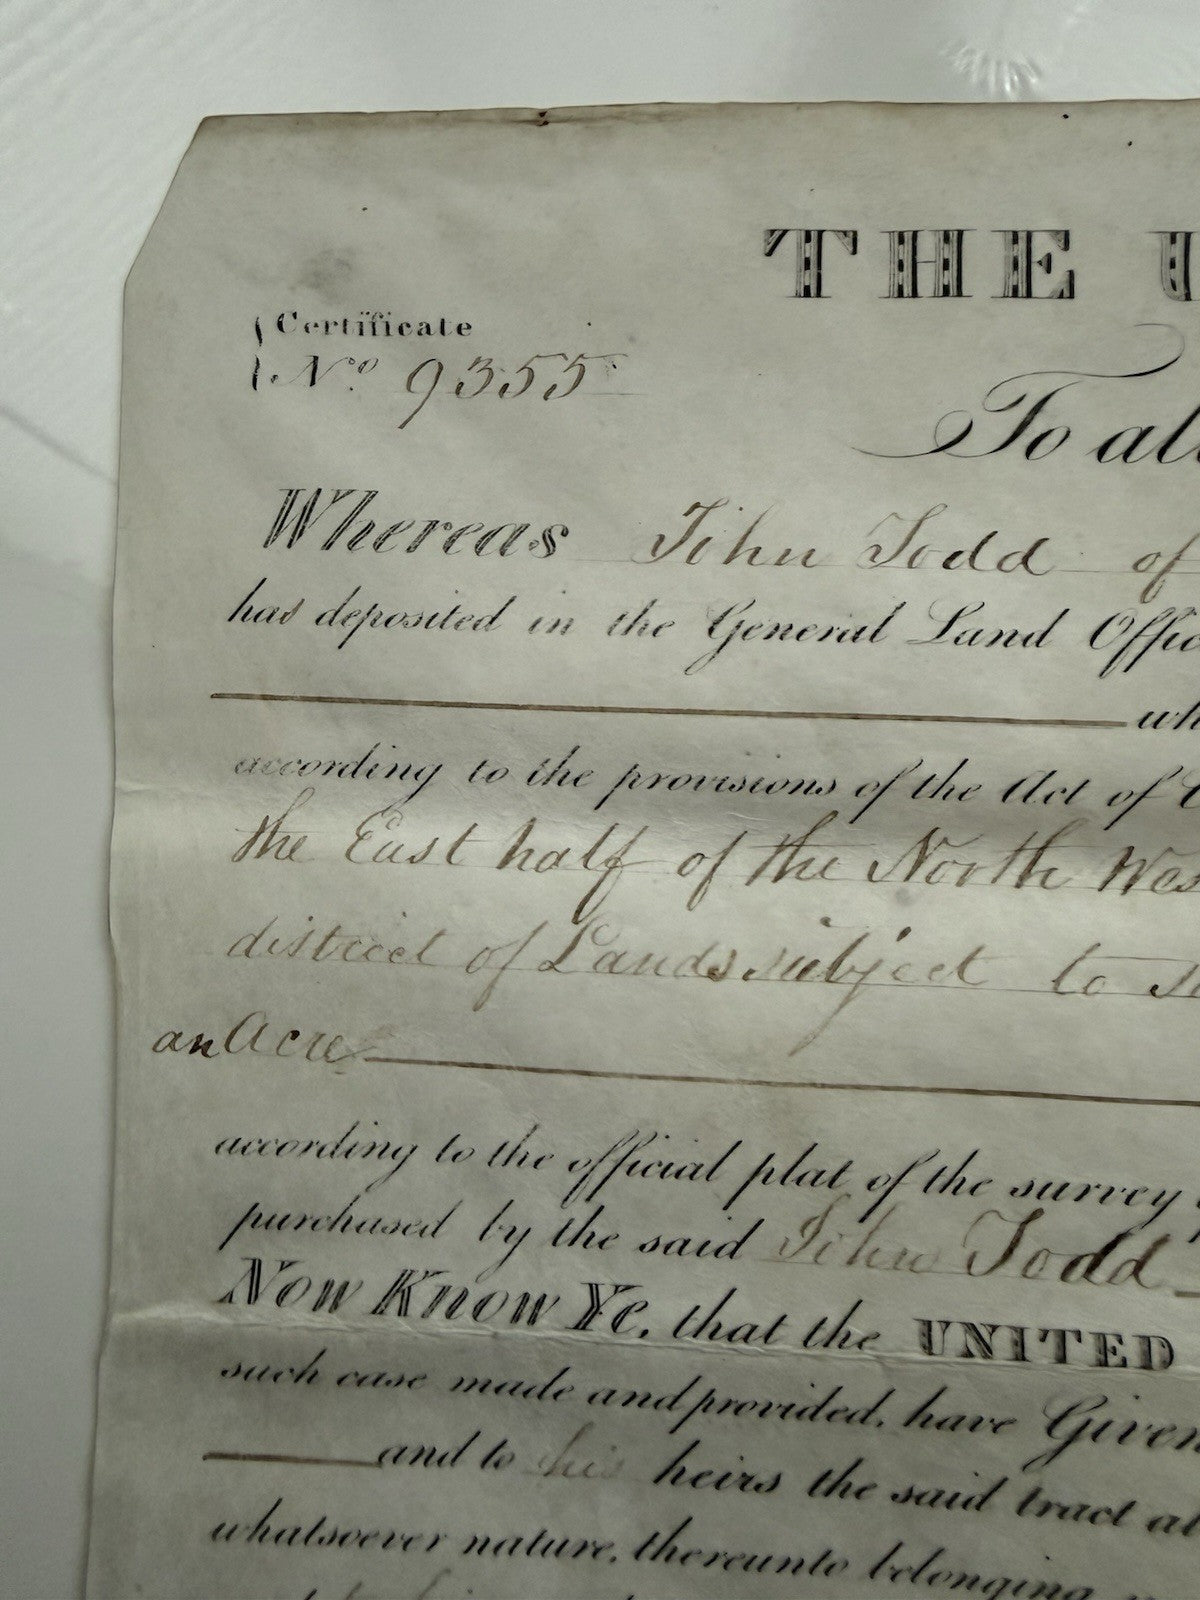 THE U
Certificate
No. 9355
To all
Whereas John Todd of
has deposited in the General Land Offic
wh
according to the provisions of the Act of C
the East half of the North Wes
district of Lands subject to s
an Acre
according to the official plat of the survey
purchased by the said John Todd
Now Know Ye, that the UNITED
such case made and provided, have Given
and to his heirs the said tract a
whatsoever nature, thereunto belonging